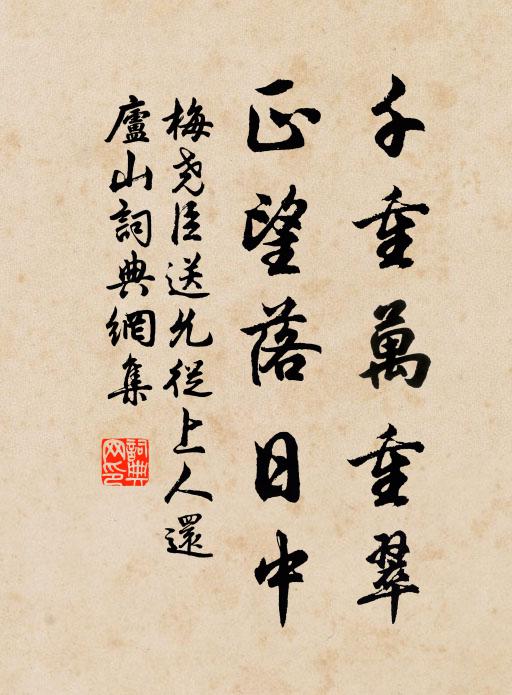 千重萬重翠
正望落日中
梅尧臣送允從上人還
廬山詞典網集
詞典
网印